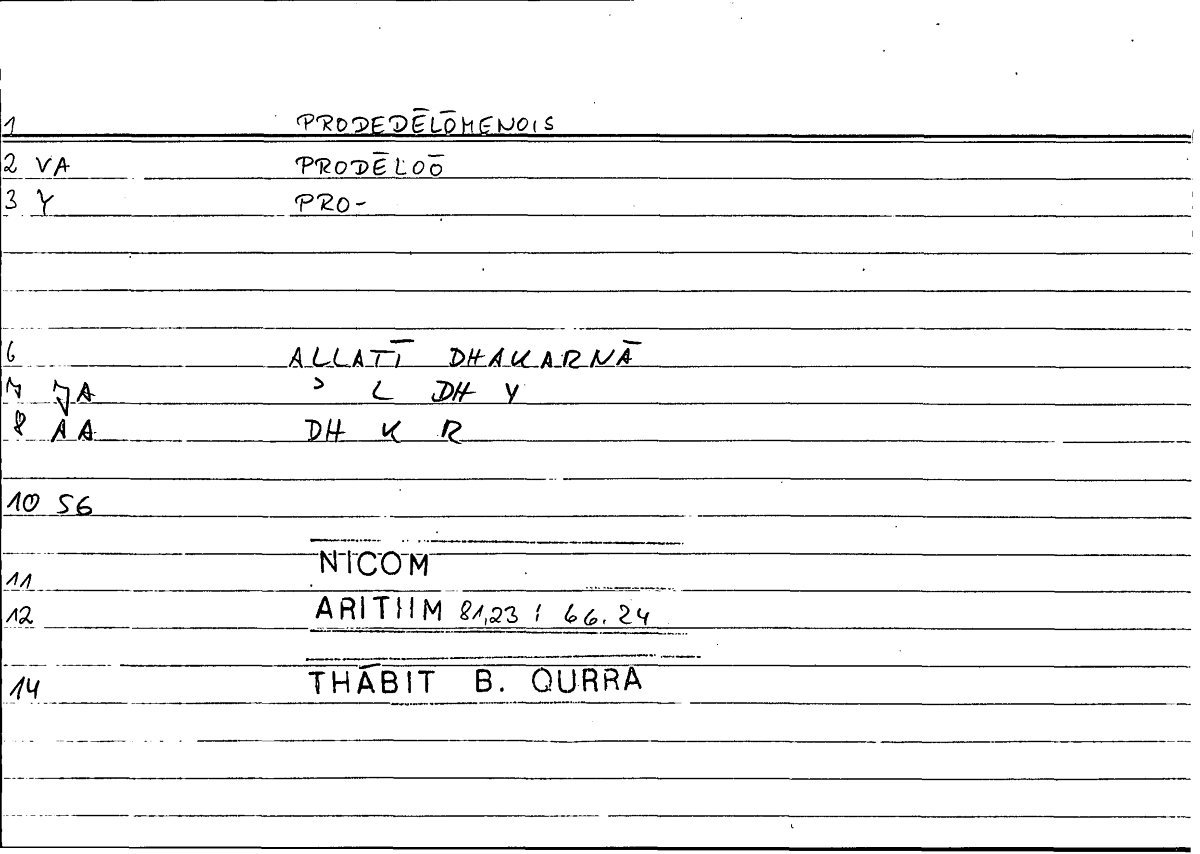 1 PRODEDĒLŌMENOIS
2 VA PRODĒLOŌ
3 Y PRO-
6 ALLATĪ DHAKARNĀ
7 JA ʾ L DH Y
8 AA DH K R
10 56
NICOM
11
12 ARITHM 81,23 ; 66.24
14 THĀBIT B. QURRA